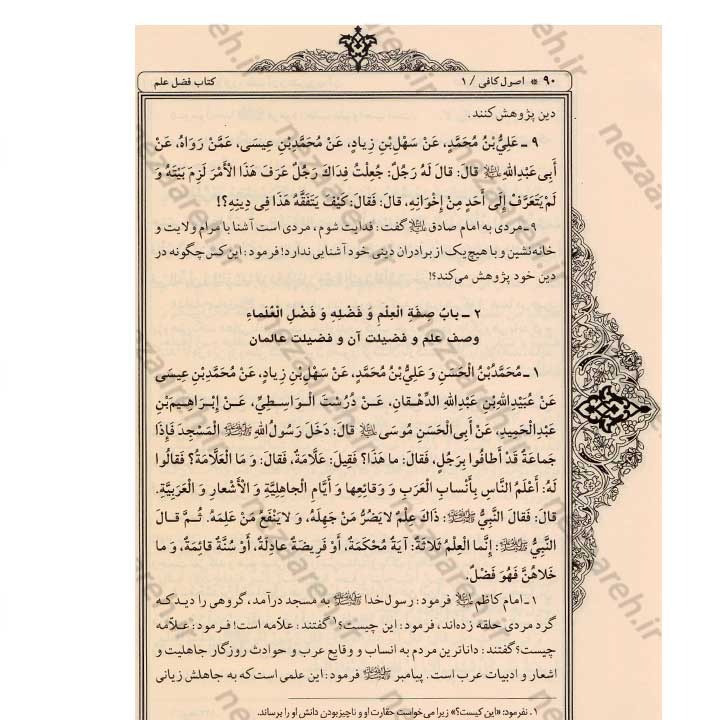 ۹۰ * اصول کافی / ۱
کتاب فضل علم
دین پژوهش کنند.
۹ ـ عَلِيُّ بْنُ مُحَمَّدٍ، عَنْ سَهْلِ بْنِ زِيادٍ، عَنْ مُحَمَّدِ بْنِ عِيسَى، عَمَّنْ رَوَاهُ، عَنْ
أَبِی عَبْدِاللهِ علیه السلام قالَ: قالَ لَهُ رَجُلٌ: جُعِلْتُ فِدَاكَ رَجُلٌ عَرَفَ هَذَا الْأَمْرَ لَزِمَ بَيْتَهُ وَ
لَمْ يَتَعَرَّفْ إِلَى أَحَدٍ مِنْ إِخْوَانِهِ، قالَ: فَقالَ: كَيْفَ يَتَفَقَّهُ هَذَا فِی دِينِهِ؟!
۹ـ مردی به امام صادق علیه السلام گفت: فدایت شوم، مردی است آشنا با مرام ولایت و
خانه‌نشین و با هیچ‌یک از برادران دینی خود آشنایی ندارد! فرمود: این کس چگونه در
دین خود پژوهش می‌کند؟!
۲ ـ بابُ صِفَةِ الْعِلْمِ وَ فَضْلِهِ وَ فَضْلِ الْعُلَماءِ
وصف علم و فضیلت آن و فضیلت عالمان
۱ ـ مُحَمَّدُ بْنُ الْحَسَنِ وَ عَلِيُّ بْنُ مُحَمَّدٍ، عَنْ سَهْلِ بْنِ زِيادٍ، عَنْ مُحَمَّدِ بْنِ عِيسَى
عَنْ عُبَيْدِ اللهِ بْنِ عَبْدِ اللهِ الدِّهْقانِ، عَنْ دُرُسْتَ الْوَاسِطِيِّ، عَنْ إِبْرَاهِيمَ بْنِ
عَبْدِ الْحَمِيدِ، عَنْ أَبِی الْحَسَنِ مُوسَى علیه السلام قالَ: دَخَلَ رَسُولُ اللهِ صلی الله علیه وآله الْمَسْجِدَ فَإِذَا
جَماعَةٌ قَدْ أَطافُوا بِرَجُلٍ، فَقالَ: ما هَذَا؟ فَقِيلَ: عَلَّامَةٌ، فَقالَ: وَ مَا الْعَلَّامَةُ؟ فَقالُوا
لَهُ: أَعْلَمُ النَّاسِ بِأَنْسابِ الْعَرَبِ وَ وَقائِعِها وَ أَيَّامِ الْجاهِلِيَّةِ وَ الْأَشْعارِ وَ الْعَرَبِيَّةِ.
قالَ: فَقالَ النَّبِيُّ صلی الله علیه وآله: ذَاكَ عِلْمٌ لا يَضُرُّ مَنْ جَهِلَهُ، وَ لا يَنْفَعُ مَنْ عَلِمَهُ. ثُمَّ قالَ
النَّبِيُّ صلی الله علیه وآله: إِنَّما الْعِلْمُ ثَلاثَةٌ: آيَةٌ مُحْكَمَةٌ، أَوْ فَرِيضَةٌ عادِلَةٌ، أَوْ سُنَّةٌ قائِمَةٌ، وَ ما
خَلاهُنَّ فَهُوَ فَضْلٌ.
۱ـ امام کاظم علیه السلام فرمود: رسول خدا صلی الله علیه وآله به مسجد درآمد، گروهی را دید که
گرد مردی حلقه زده‌اند، فرمود: این چیست؟۱ گفتند: علّامه است! فرمود: علّامه
چیست؟ گفتند: داناترین مردم به انساب و وقایع عرب و حوادث روزگار جاهلیت و
اشعار و ادبیات عرب است. پیامبر صلی الله علیه وآله فرمود: این علمی است که به جاهلش زیانی
۱. نفرمود: «این کیست؟» زیرا می‌خواست حقارت او و ناچیز بودن دانش او را برساند.
nezaareh.ir